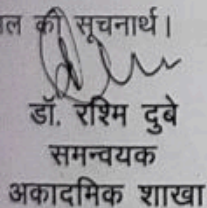 ल की सूचनार्थ।
डॉ. रश्मि दुबे
समन्वयक
अकादमिक शाखा